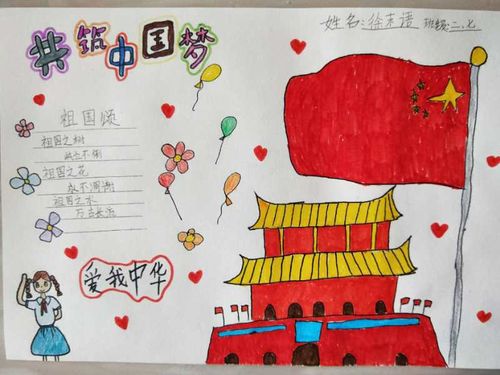 姓名:徐末语 班级:二、七
共筑中国梦
祖国颂
祖国之树
屹立不倒
祖国之花
永不凋谢
祖国之水
万古长流
爱我中华